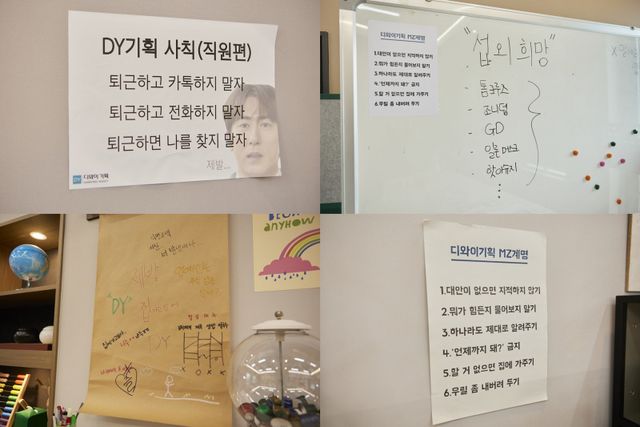 DY기획 사칙(직원편)
퇴근하고 카톡하지 말자
퇴근하고 전화하지 말자
퇴근하면 나를 찾지 말자
제발...
DY 디와이기획
디와이기획 MZ계명
1.대안이 없으면 지적하지 않기
2.뭐가 힘든지 물어보지 말기
3.하나라도 제대로 알려주기
4.'언제까지 돼?' 금지
5.할 거 없으면 집에 가주기
6.우릴 좀 내버려 두기
"섭외 희망"
- 톰크루즈
- 조니뎁
- GD
- 일론 머스크
- 핫이슈지
BLOW
anyHOW
제발
"DY"
집
디와이기획 MZ계명
1.대안이 없으면 지적하지 않기
2.뭐가 힘든지 물어보지 말기
3.하나라도 제대로 알려주기
4.'언제까지 돼?' 금지
5.할 거 없으면 집에 가주기
6.우릴 좀 내버려 두기